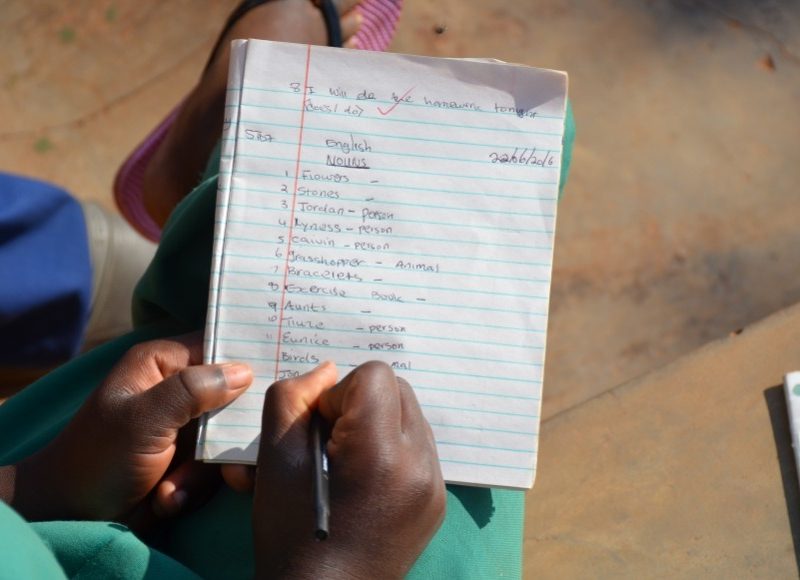 8 I will do the homework tonight
(does / do)
STD7 English 22/06/2016
NOUNS
1 Flowers -
2 Stones -
3 Jordan - person
4 Lyness - person
5 Calvin - person
6 grasshopper - Animal
7 Bracelets -
8 Exercise Book -
9 Aunts -
10 - person
11 Eunice - person
Birds mal